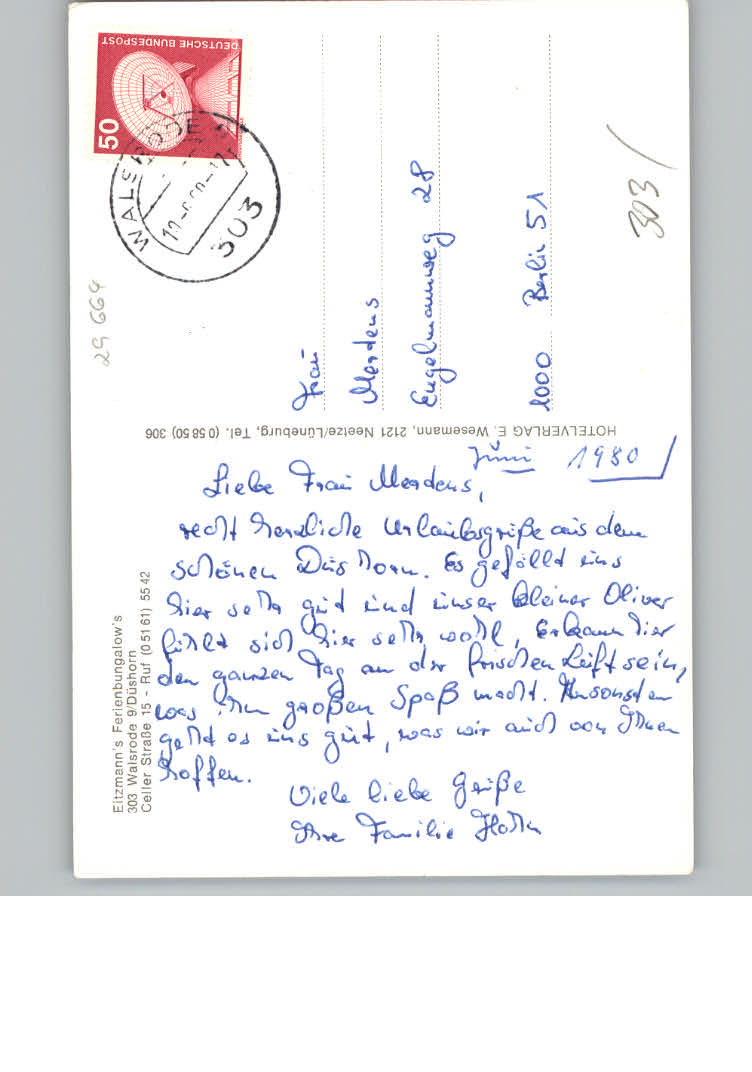 DEUTSCHE BUNDESPOST
50
WALSRODE
303
303
29 664
Frau
Mertens
Engelmannweg 28
1000 Berlin 51
HOTELVERLAG E. Wesemann, 2121 Neetze/Lüneburg, Tel. (0 58 50) 306
Eitzmann's Ferienbungalow's
303 Walsrode 9/Düshorn
Celler Straße 15 - Ruf (0 51 61) 55 42
Juni 1980
Liebe Frau Mertens,
recht herzliche Urlaubsgrüße aus dem
schönen Düshorn. Es gefällt uns
hier sehr gut und unser kleiner Oliver
fühlt sich hier sehr wohl, Er kann hier
den ganzen Tag an der frischen Luft sein,
was ihm großen Spaß macht. Ansonsten
geht es uns gut, was wir auch von Ihnen
hoffen.
Viele liebe Grüße
Ihre Familie